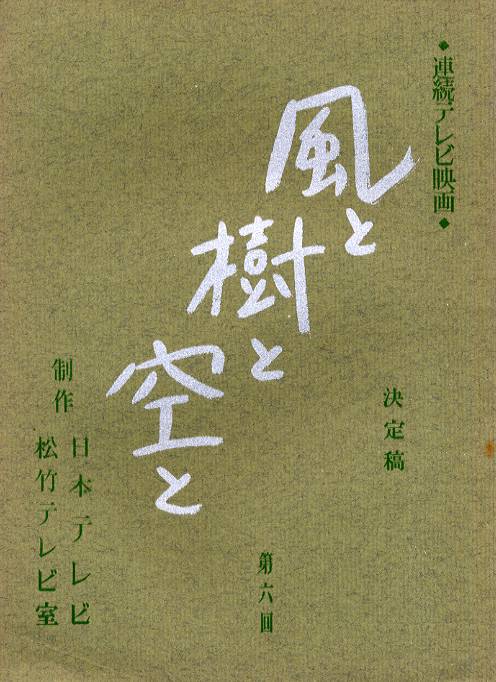 ◆連続テレビ映画◆
風と
樹と
空と
決定稿
第六回
制作
日本テレビ
松竹テレビ室